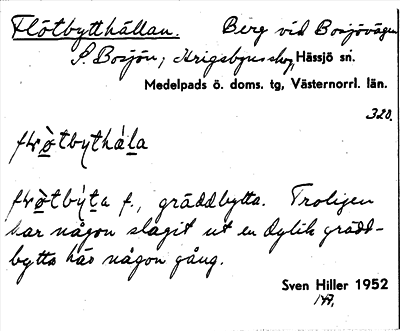 Flötbytthällan. Berg vid Bosjövägen
S. Bosjön, Krigsbyns skog, Hässjö sn.
Medelpads ö. doms. tg, Västernorrl. län.
320.
flɤ̀tbythá̱la
flɤ̀tbýta f., gräddbytta. Troligen
har någon slagit ut en dylik grädd-
bytta här någon gång.
Sven Hiller 1952